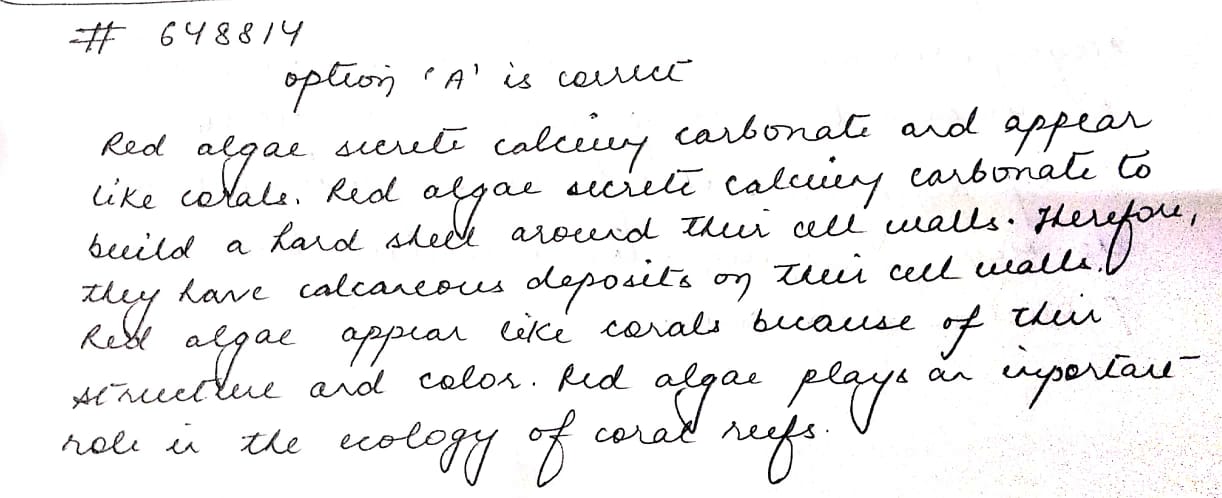 # 648814
option 'A' is correct
Red algae secrete calcium carbonate and appear
like corals. Red algae secrete calcium carbonate to
build a hard shell around their cell walls. Therefore,
they have calcareous deposits on their cell walls.
Red algae appear like corals because of their
structure and color. Red algae plays an important
role in the ecology of coral reefs.